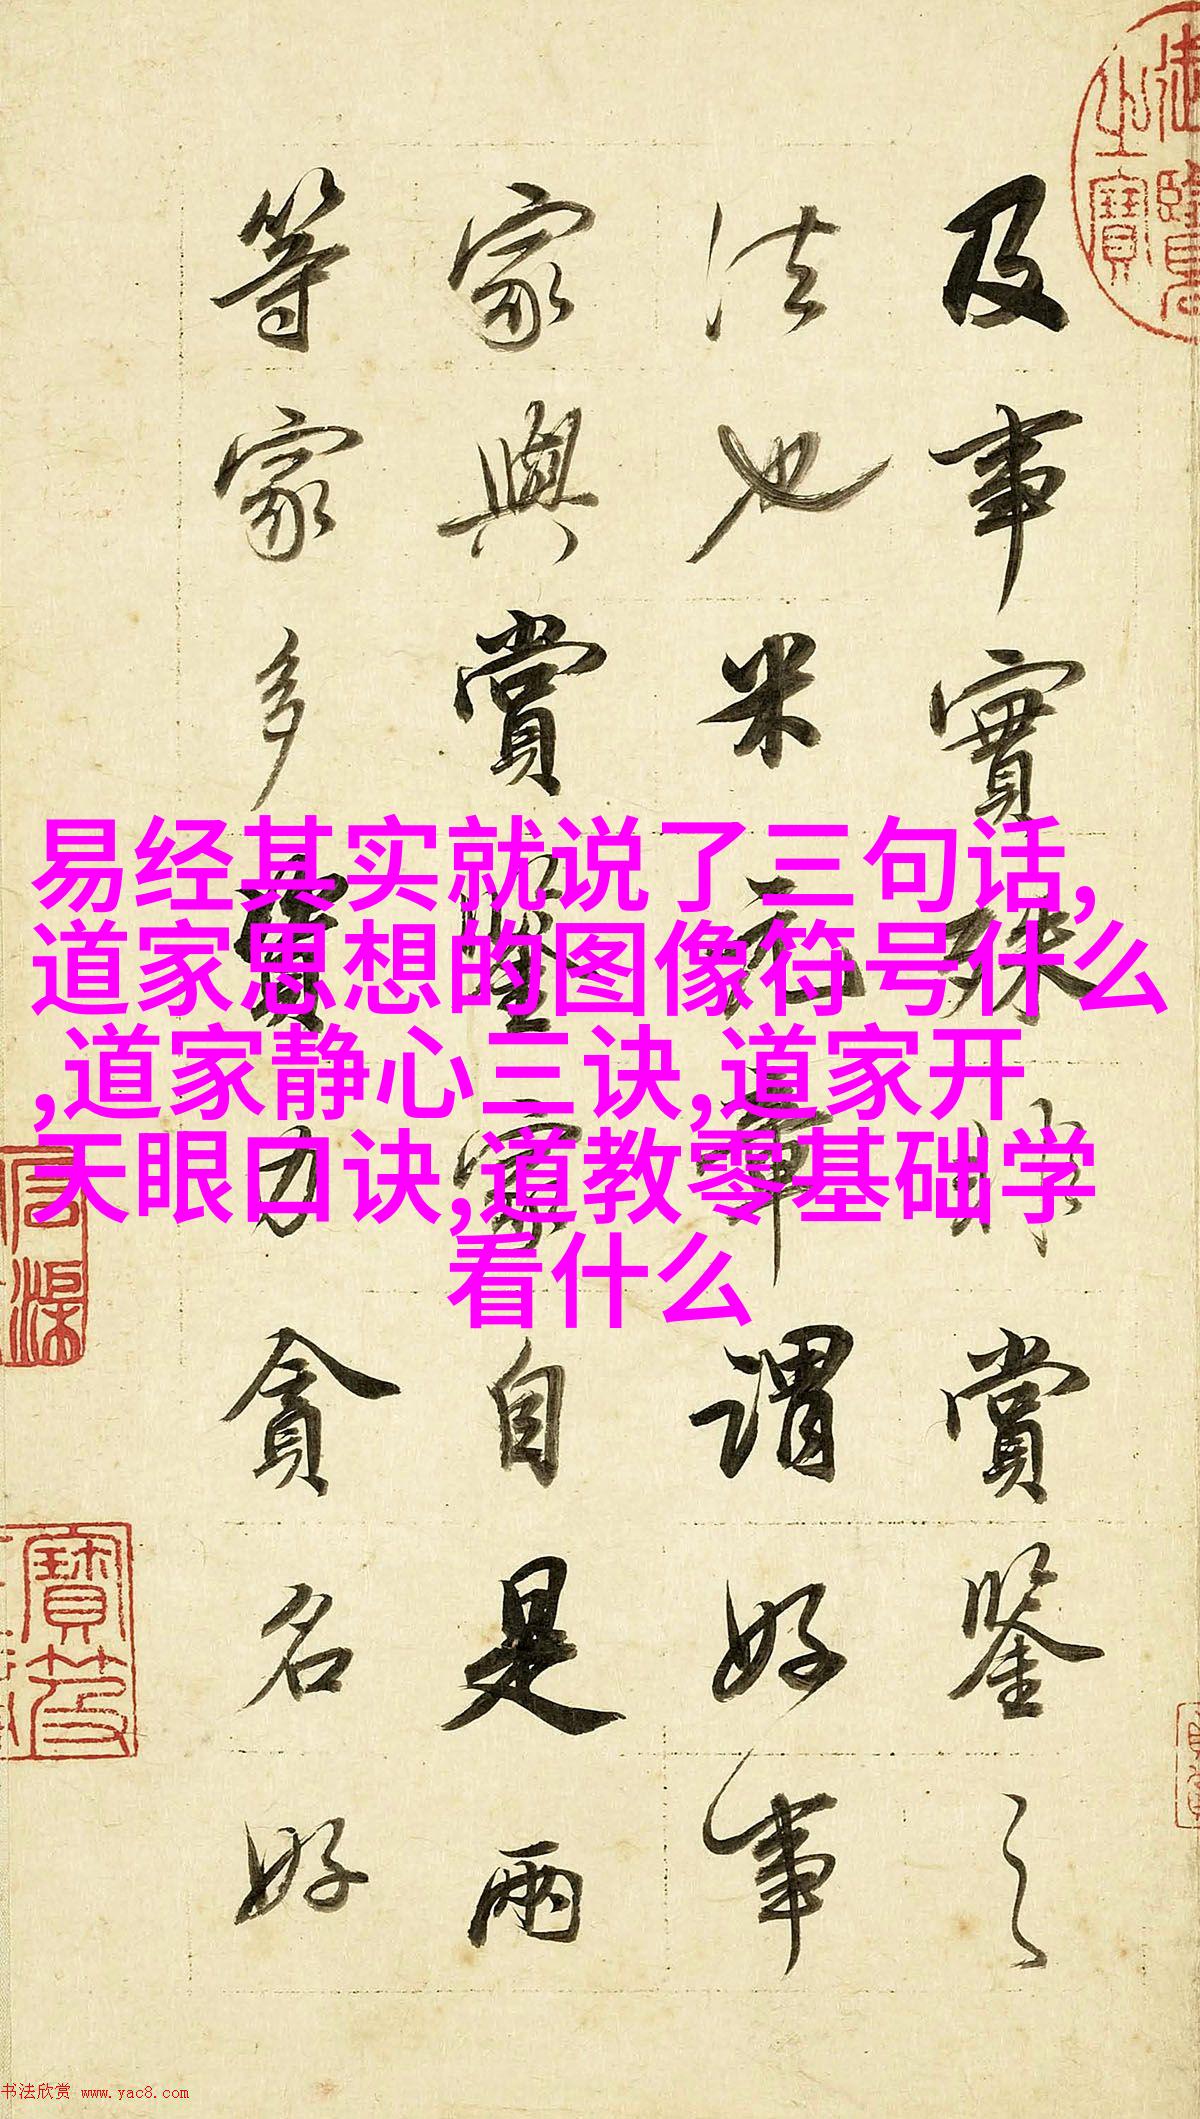 及事實殊賞鑒之
法也米元章謂好事
家與賞鑒家自是兩
等家多資力貪名好
易经其实就说了三句话,
道家思想的图像符号什么
,道家静心三诀,道家开
天眼口诀,道教零基础学
看什么
御覽之寶
书法欣赏 www.yac8.com